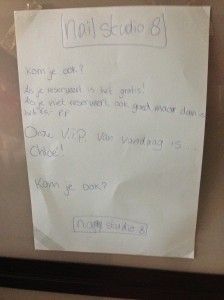 nail studio 8
Kom je ook?
Als je reserveert is het gratis!
Als je niet reserveert ook goed maar dan
Onze V.I.P. van vandaag is ...
Chloë!
Kom je ook?
nail studio 8